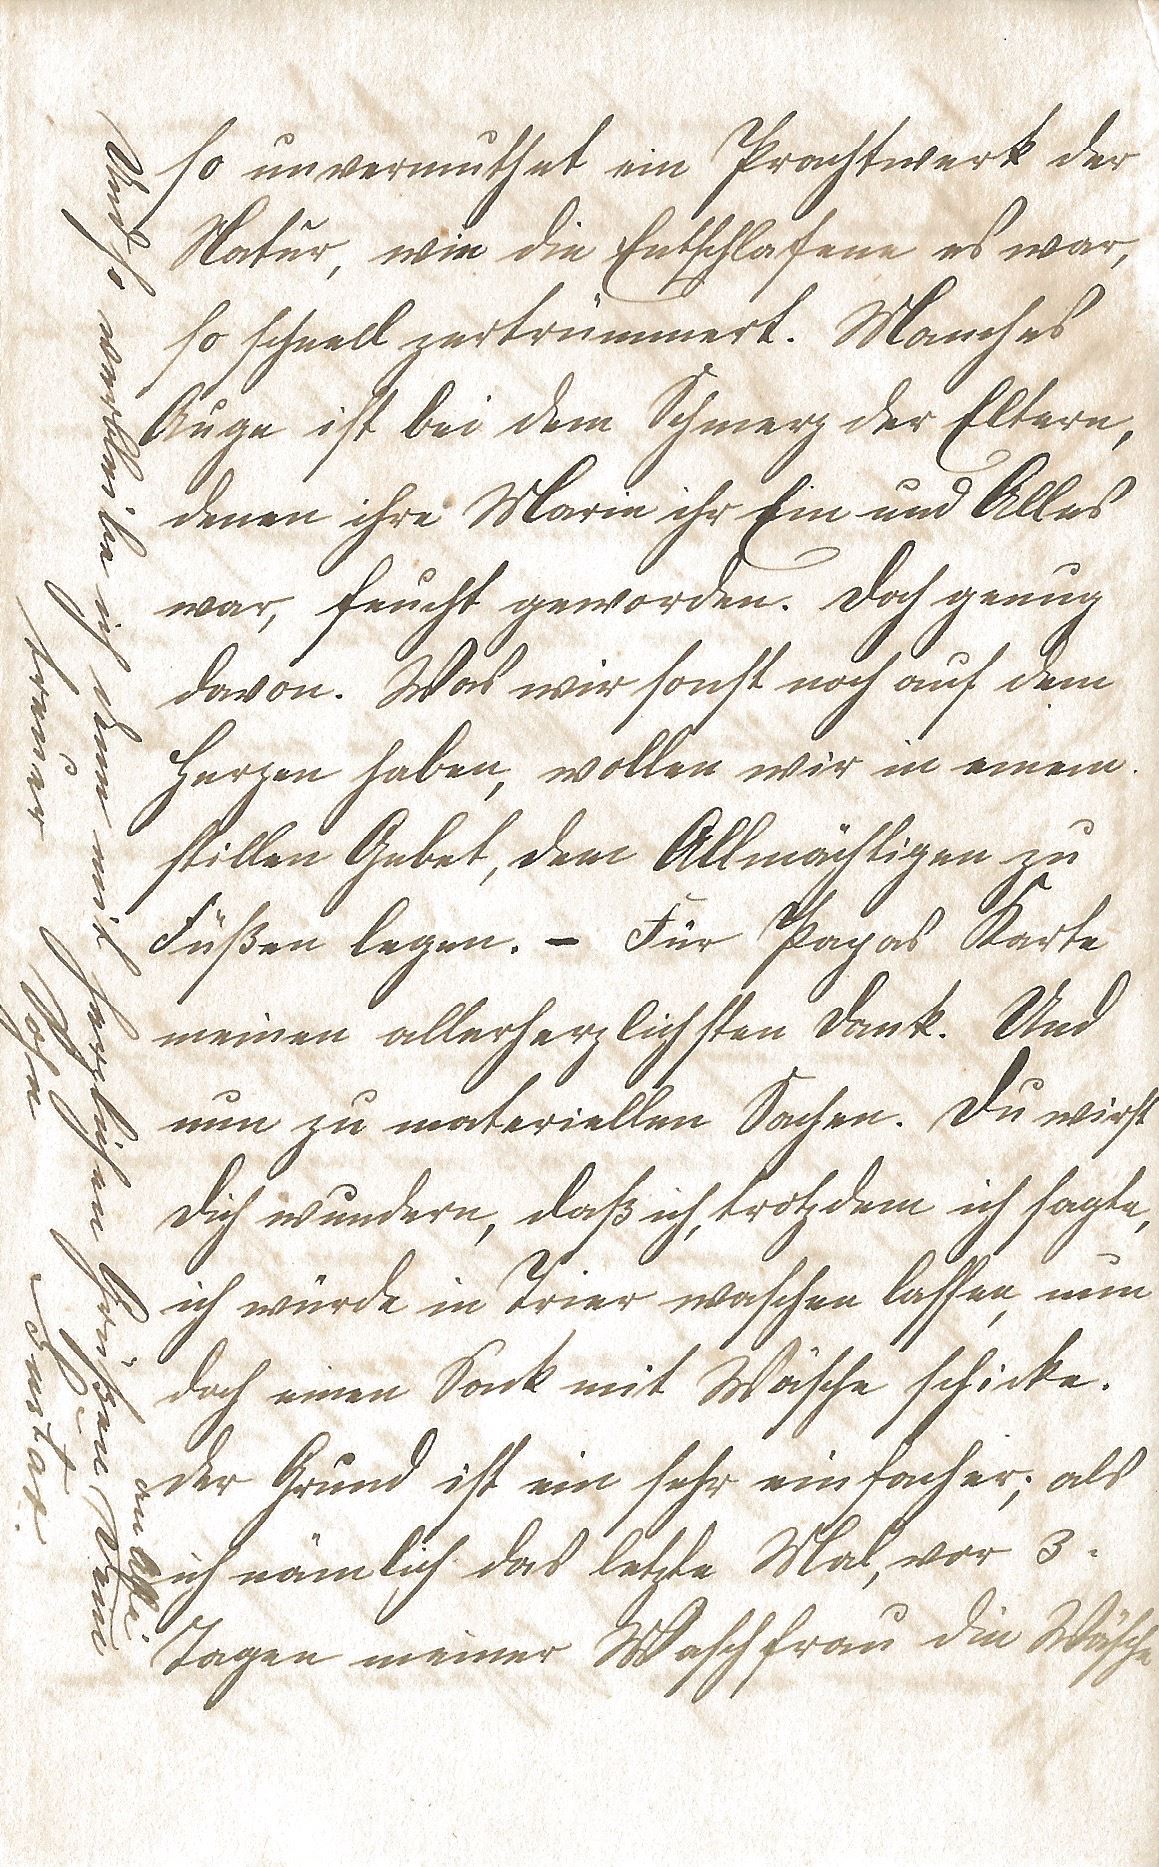 so unvermuthet ein Prachtwerk der
Natur, wie die Entschlafene es war,
so schnell zertrümmert. Manches
Auge ist bei dem Schmerz der Eltern,
denen ihre Marie ihr Ein und Alles
war, feucht geworden. Doch genug
davon. Was wir sonst noch auf dem
Herzen haben, wollen wir in einem
stillen Gebet, dem Allmächtigen zu
Füßen legen. – Für Papas Karte
meinen allerherzlichsten Dank. Und
nun zu materiellen Sachen. Du wirst
Dich wundern, daß ich, trotzdem ich sagte,
ich würde in Trier waschen lassen, nun
doch einen Sack mit Wäsche schicke.
Der Grund ist ein sehr einfacher; als
ich nämlich das letzte Mal, vor 3
Tagen meiner Waschfrau die Wäsche
Und so verbleibe ich denn mit herzlichen Grüßen Dein
treuer Sohn Gustav